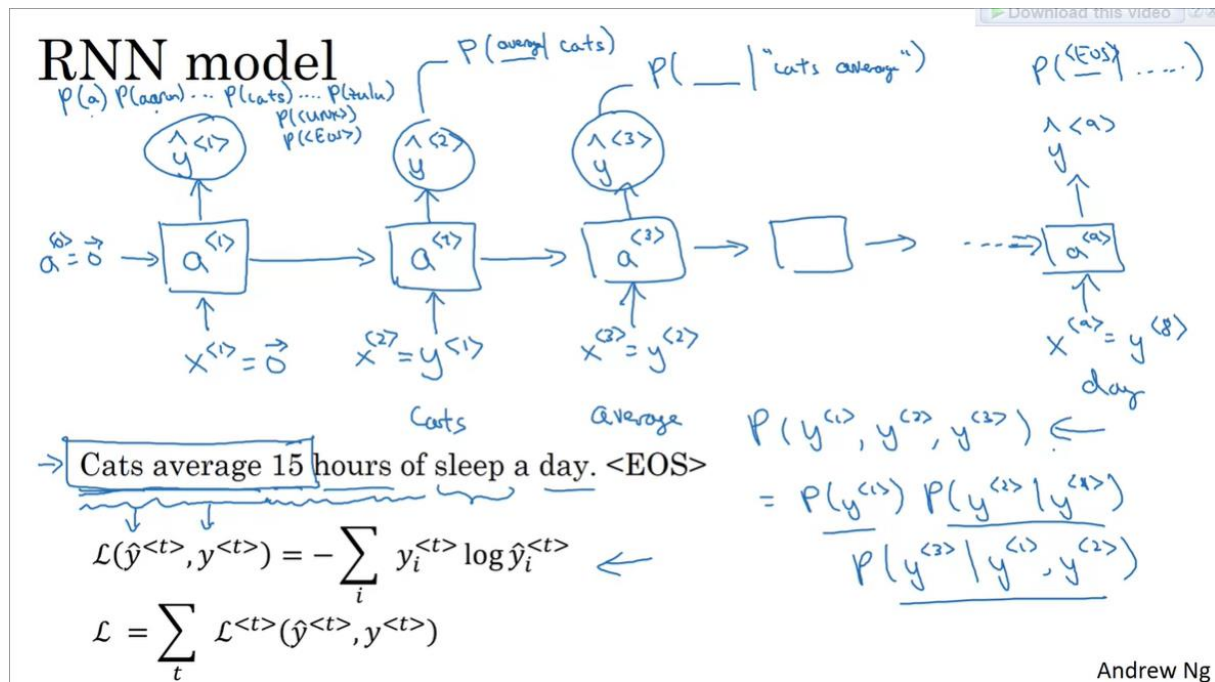 Download this video
RNN model
P(a) P(aaron) ... P(cats) .... P(zulu)
P(<UNK>)
P(<EOS>)
P(average | cats)
P(___ | "cats average")
P(<EOS> | .....)
ŷ<1>
ŷ<2>
ŷ<3>
ŷ<9>
a<0> = 0⃗
a<1>
a<2>
a<3>
a<9>
x<1> = 0⃗
x<2> = y<1>
x<3> = y<2>
x<9> = y<8>
Cats
average
day
Cats average 15 hours of sleep a day. <EOS>
ℒ(ŷ<t>, y<t>) = −∑i yi<t> log ŷi<t>
ℒ = ∑t ℒ<t>(ŷ<t>, y<t>)
P(y<1>, y<2>, y<3>)
= P(y<1>) P(y<2> | y<1>)
P(y<3> | y<1>, y<2>)
Andrew Ng